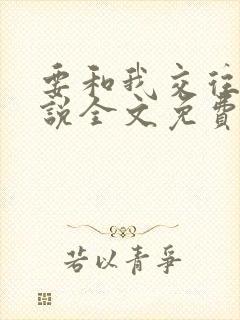 要和我交往
說全文免費
若以青爭